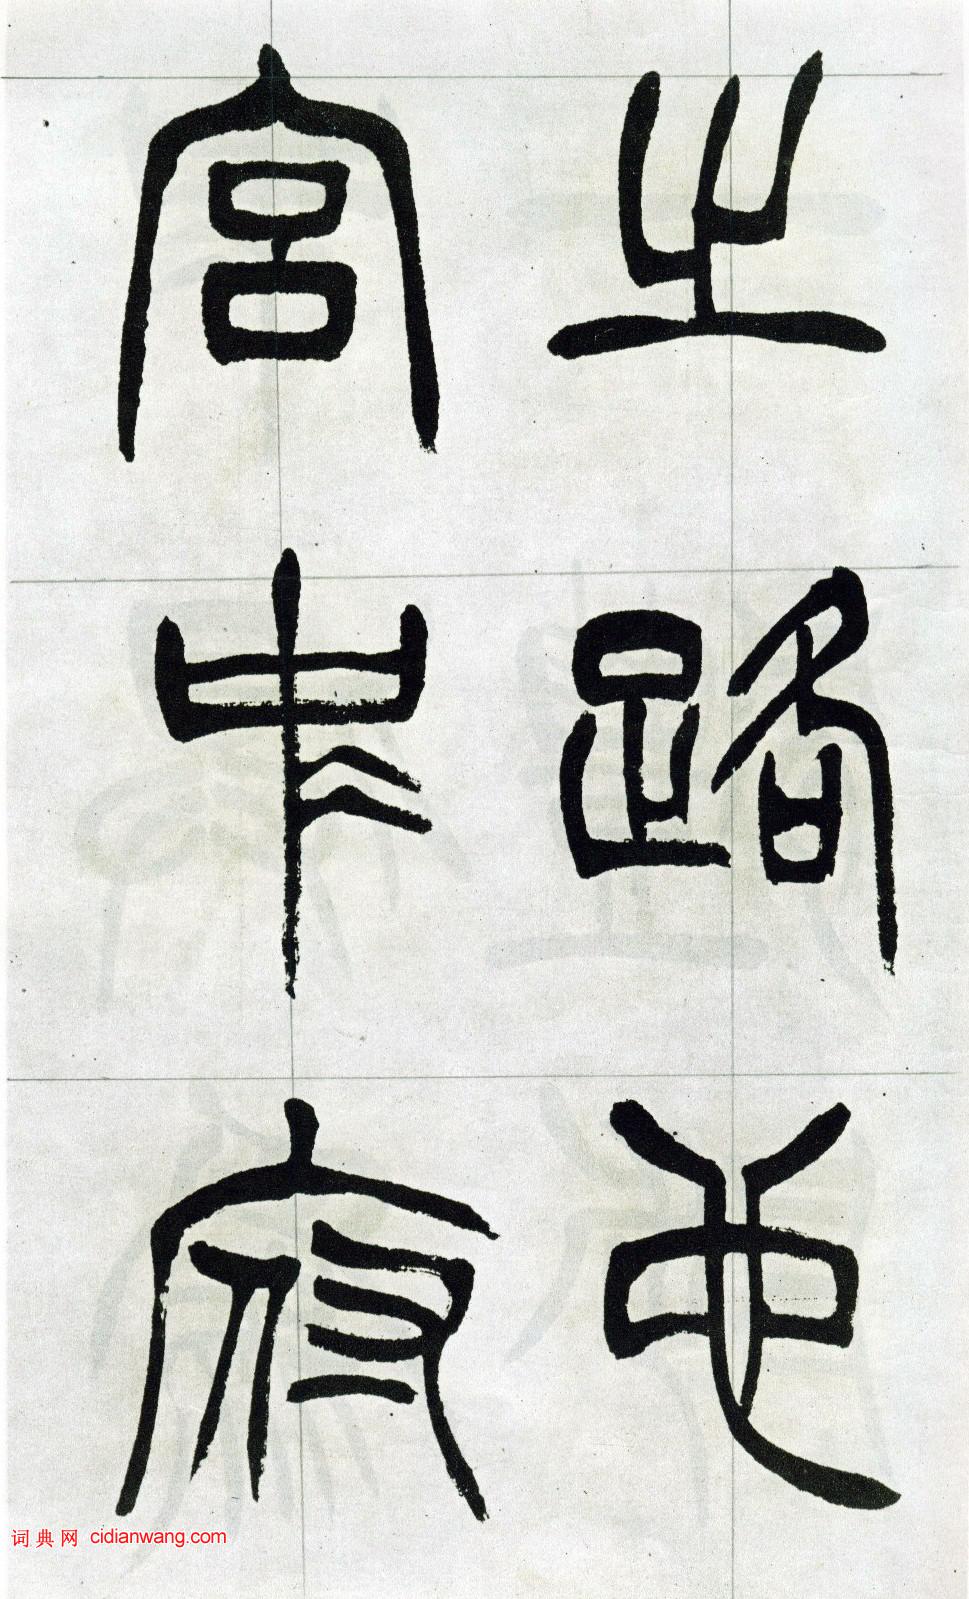 之路也
宮中府
词典网 cidianwang.com